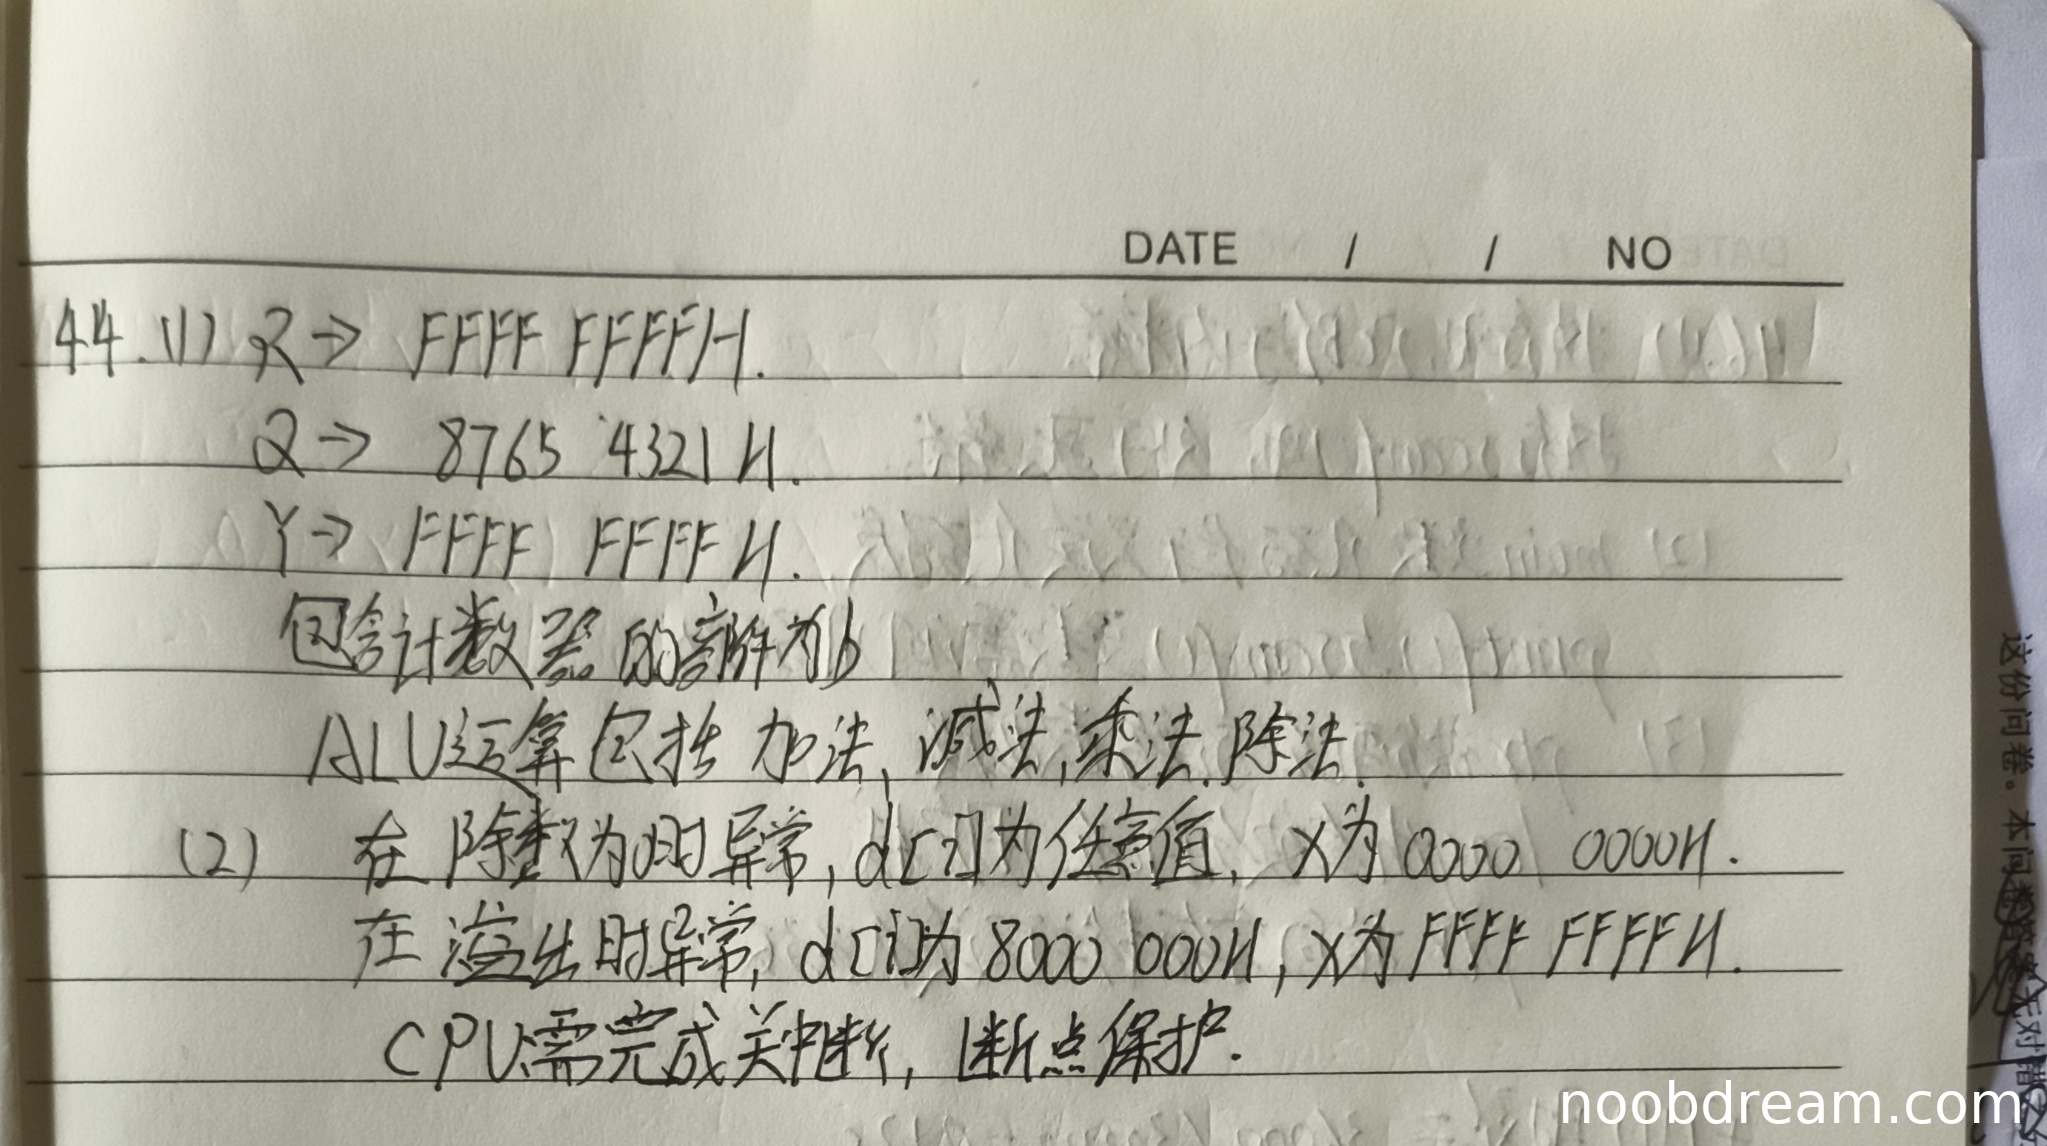 DATE / / NO
44.(1) R→ FFFF FFFFH.
Q→ 8765 4321H.
Y→ FFFF FFFFH.
包含计数器的部件为b
ALU运算包括 加法、减法、乘法、除法.
(2) 在除数为0时异常, d[i]为任意值, x为 0000 0000H.
在溢出时异常, d[i]为 8000 000H, x为 FFFF FFFFH.
CPU需完成关中断, 断点保护.
这份问卷。本问
noobdream.com